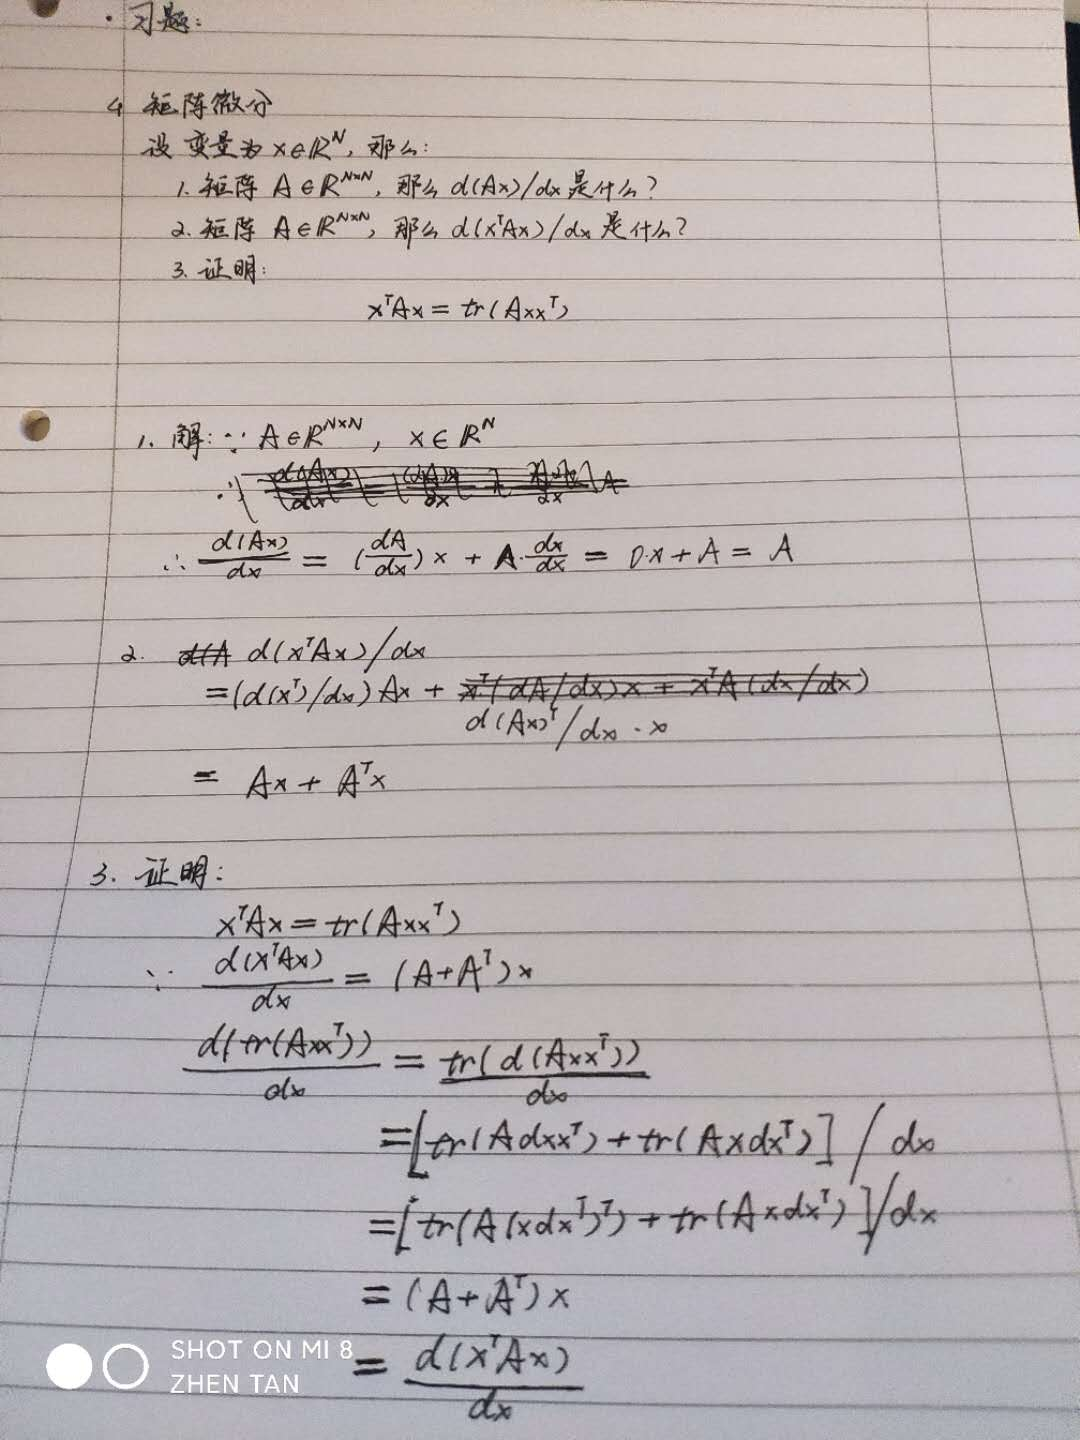 · 习题:
4 矩阵微分
设 变量为 x∈ℝᴺ, 那么:
1. 矩阵 A∈ℝᴺˣᴺ, 那么 d(Ax)/dx 是什么?
2. 矩阵 A∈ℝᴺˣᴺ, 那么 d(xᵀAx)/dx 是什么?
3. 证明:
xᵀAx = tr(Axxᵀ)
1. 解: ∵ A∈ℝᴺˣᴺ, x∈ℝᴺ
∴ d(Ax)/dx = (dA/dx)x + A·dx/dx = 0·x + A = A
2. d(xᵀAx)/dx
= (d(xᵀ)/dx) Ax + x̶ᵀ̶(̶d̶A̶/̶d̶x̶)̶x̶ ̶+̶ ̶x̶ᵀ̶A̶(̶d̶x̶/̶d̶x̶)̶
d(Ax)ᵀ/dx · x
= Ax + Aᵀx
3. 证明:
xᵀAx = tr(Axxᵀ)
∵ d(xᵀAx)/dx = (A+Aᵀ)x
d(tr(Axxᵀ))/dx = tr(d(Axxᵀ))/dx
= [tr(Adxxᵀ) + tr(Axdxᵀ)] / dx
= [tr(A(xdxᵀ)ᵀ) + tr(Axdxᵀ)]/dx
= (A+Aᵀ)x
= d(xᵀAx)/dx
SHOT ON MI 8
ZHEN TAN